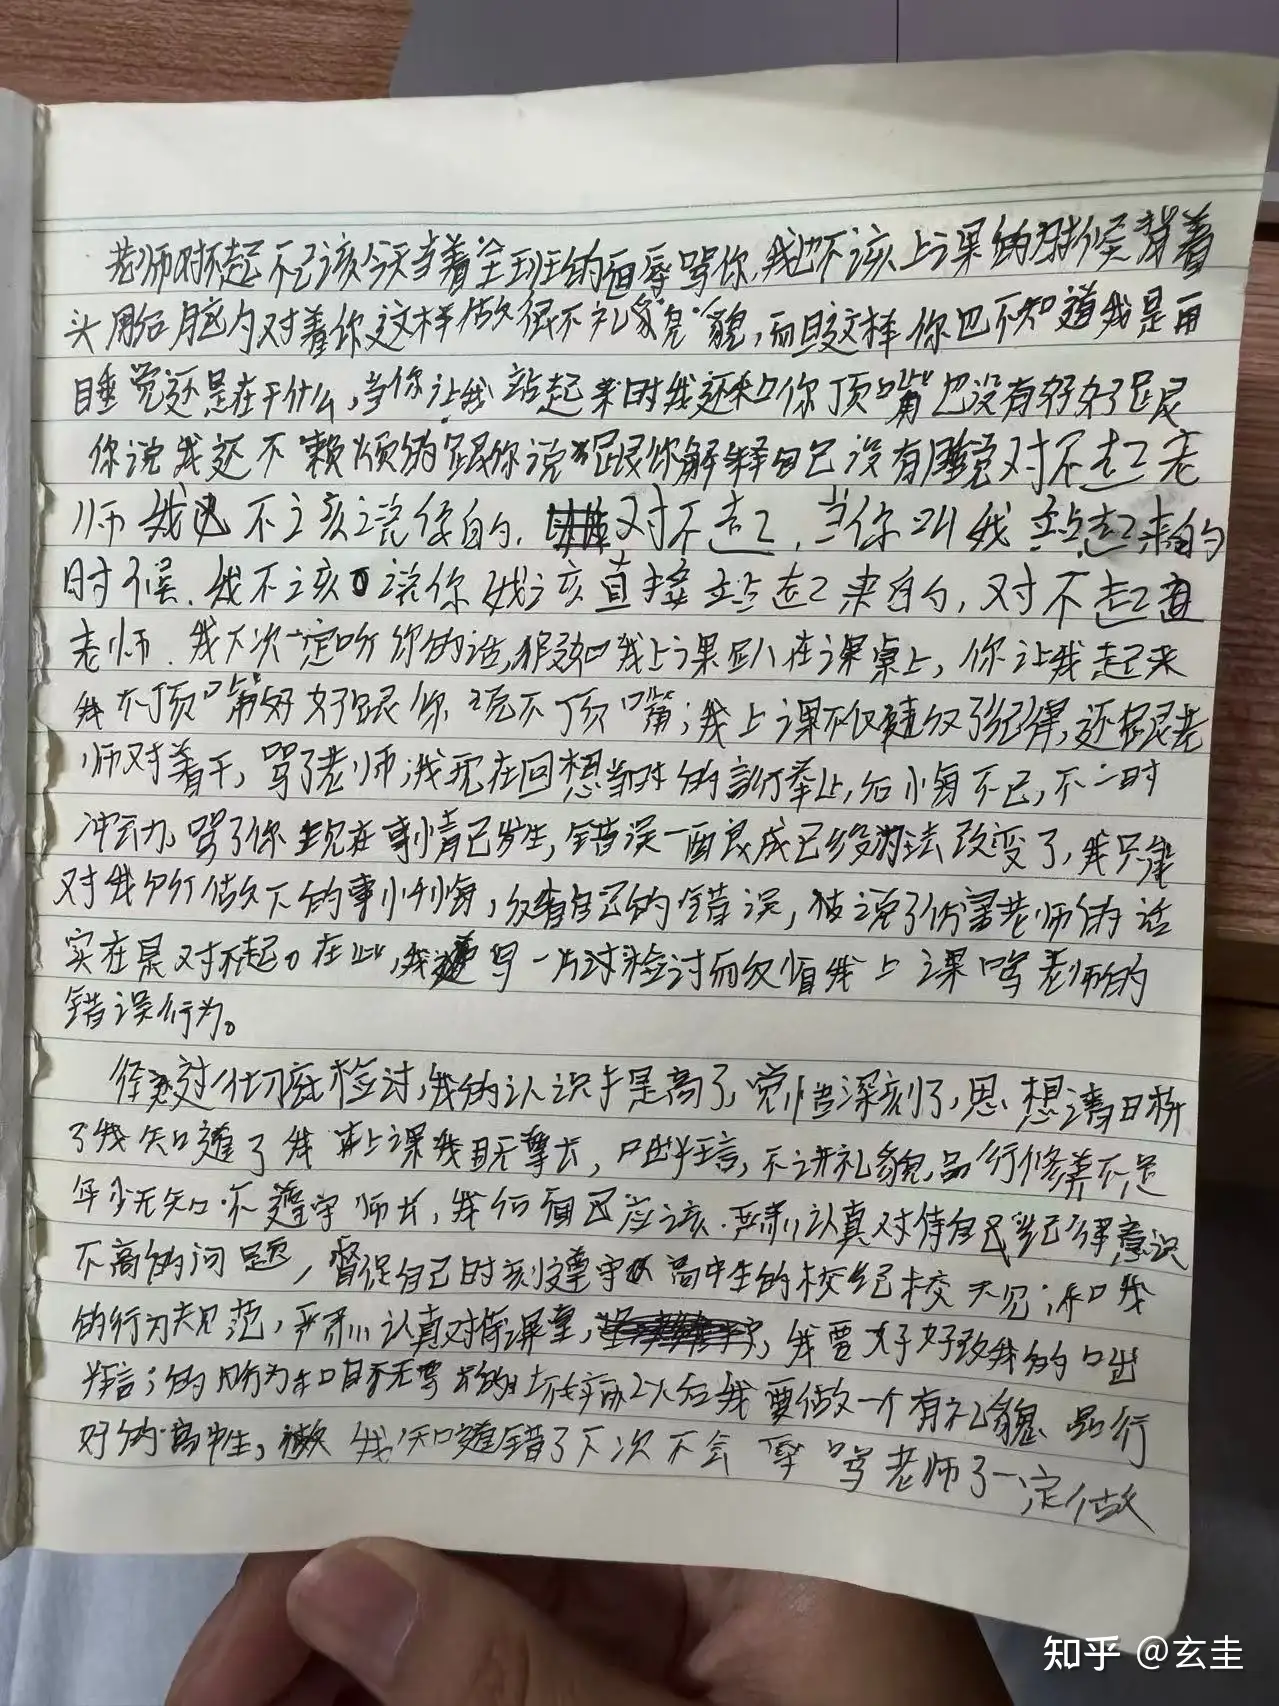 老师对不起不己该今天当着全班的面辱骂你,我也不该上课的时候背着
头用后脑勺对着你这样做很不礼貌,而且这样你也不知道我是用
睡觉还是在干什么,当你让我站起来时我还和你顶嘴也没有好好跟
你说我还不赖烦的跟你说 跟你解释自己没有睡觉对不起老
师我 不该说你的,对不起,当你叫我站起来的
时候,我不该 说你我该直接站起来的,对不起
老师.我下次一定听你的话,假如我上课趴在课桌上,你让我起来
我不顶嘴好好跟你说不顶嘴;我上课不仅违反了纪律,还跟老
师对着干,骂了老师;我现在回想当时的 举止,后悔不已,不一时
冲动,骂了你 现在事情已发生,错误一酿成已经没法改变了,我只能
对我所做下的事忏悔,反省自己的错误,被说了伤害老师的话
实在是对不起。在此,我 写一片过检讨而反省我上课骂老师的
错误行为。
经过彻底检讨,我的认识于是高了,觉悟深刻了,思想清晰
了我知道了我 上课我目无尊长,口出狂言,不讲礼貌,品行修养不足
年少无知不遵守师长,我 自己应该.严肃认真对待自己纪律意识
不高的问题,督促自己时刻遵守 高中生的校纪校规;和我
的行为规范,严肃认真对待课堂, 我要好好改我的口出
狂言;的 行为和目无尊长的坏毛病以后我要做一个有礼貌、品行
好的高中生, 我知道错了下次不会辱骂老师了一定做
知乎 @玄圭